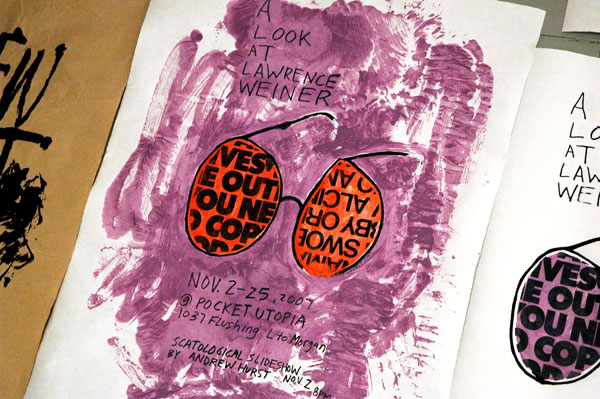 A
LOOK
AT
LAWRENCE
WEINER
IVES
E OUT
OU NE
O COP
SWOE
BY OR
ALCI
NOV. 2-25, 2007
@ POCKET UTOPIA
1037 Flushing L to Morgan
SCATOLOGICAL SLIDESHOW
BY ANDREW HURST NOV 2 8PM
A
LO
AT
LAW
WEI
IVES
E OUT
OU N
O COP